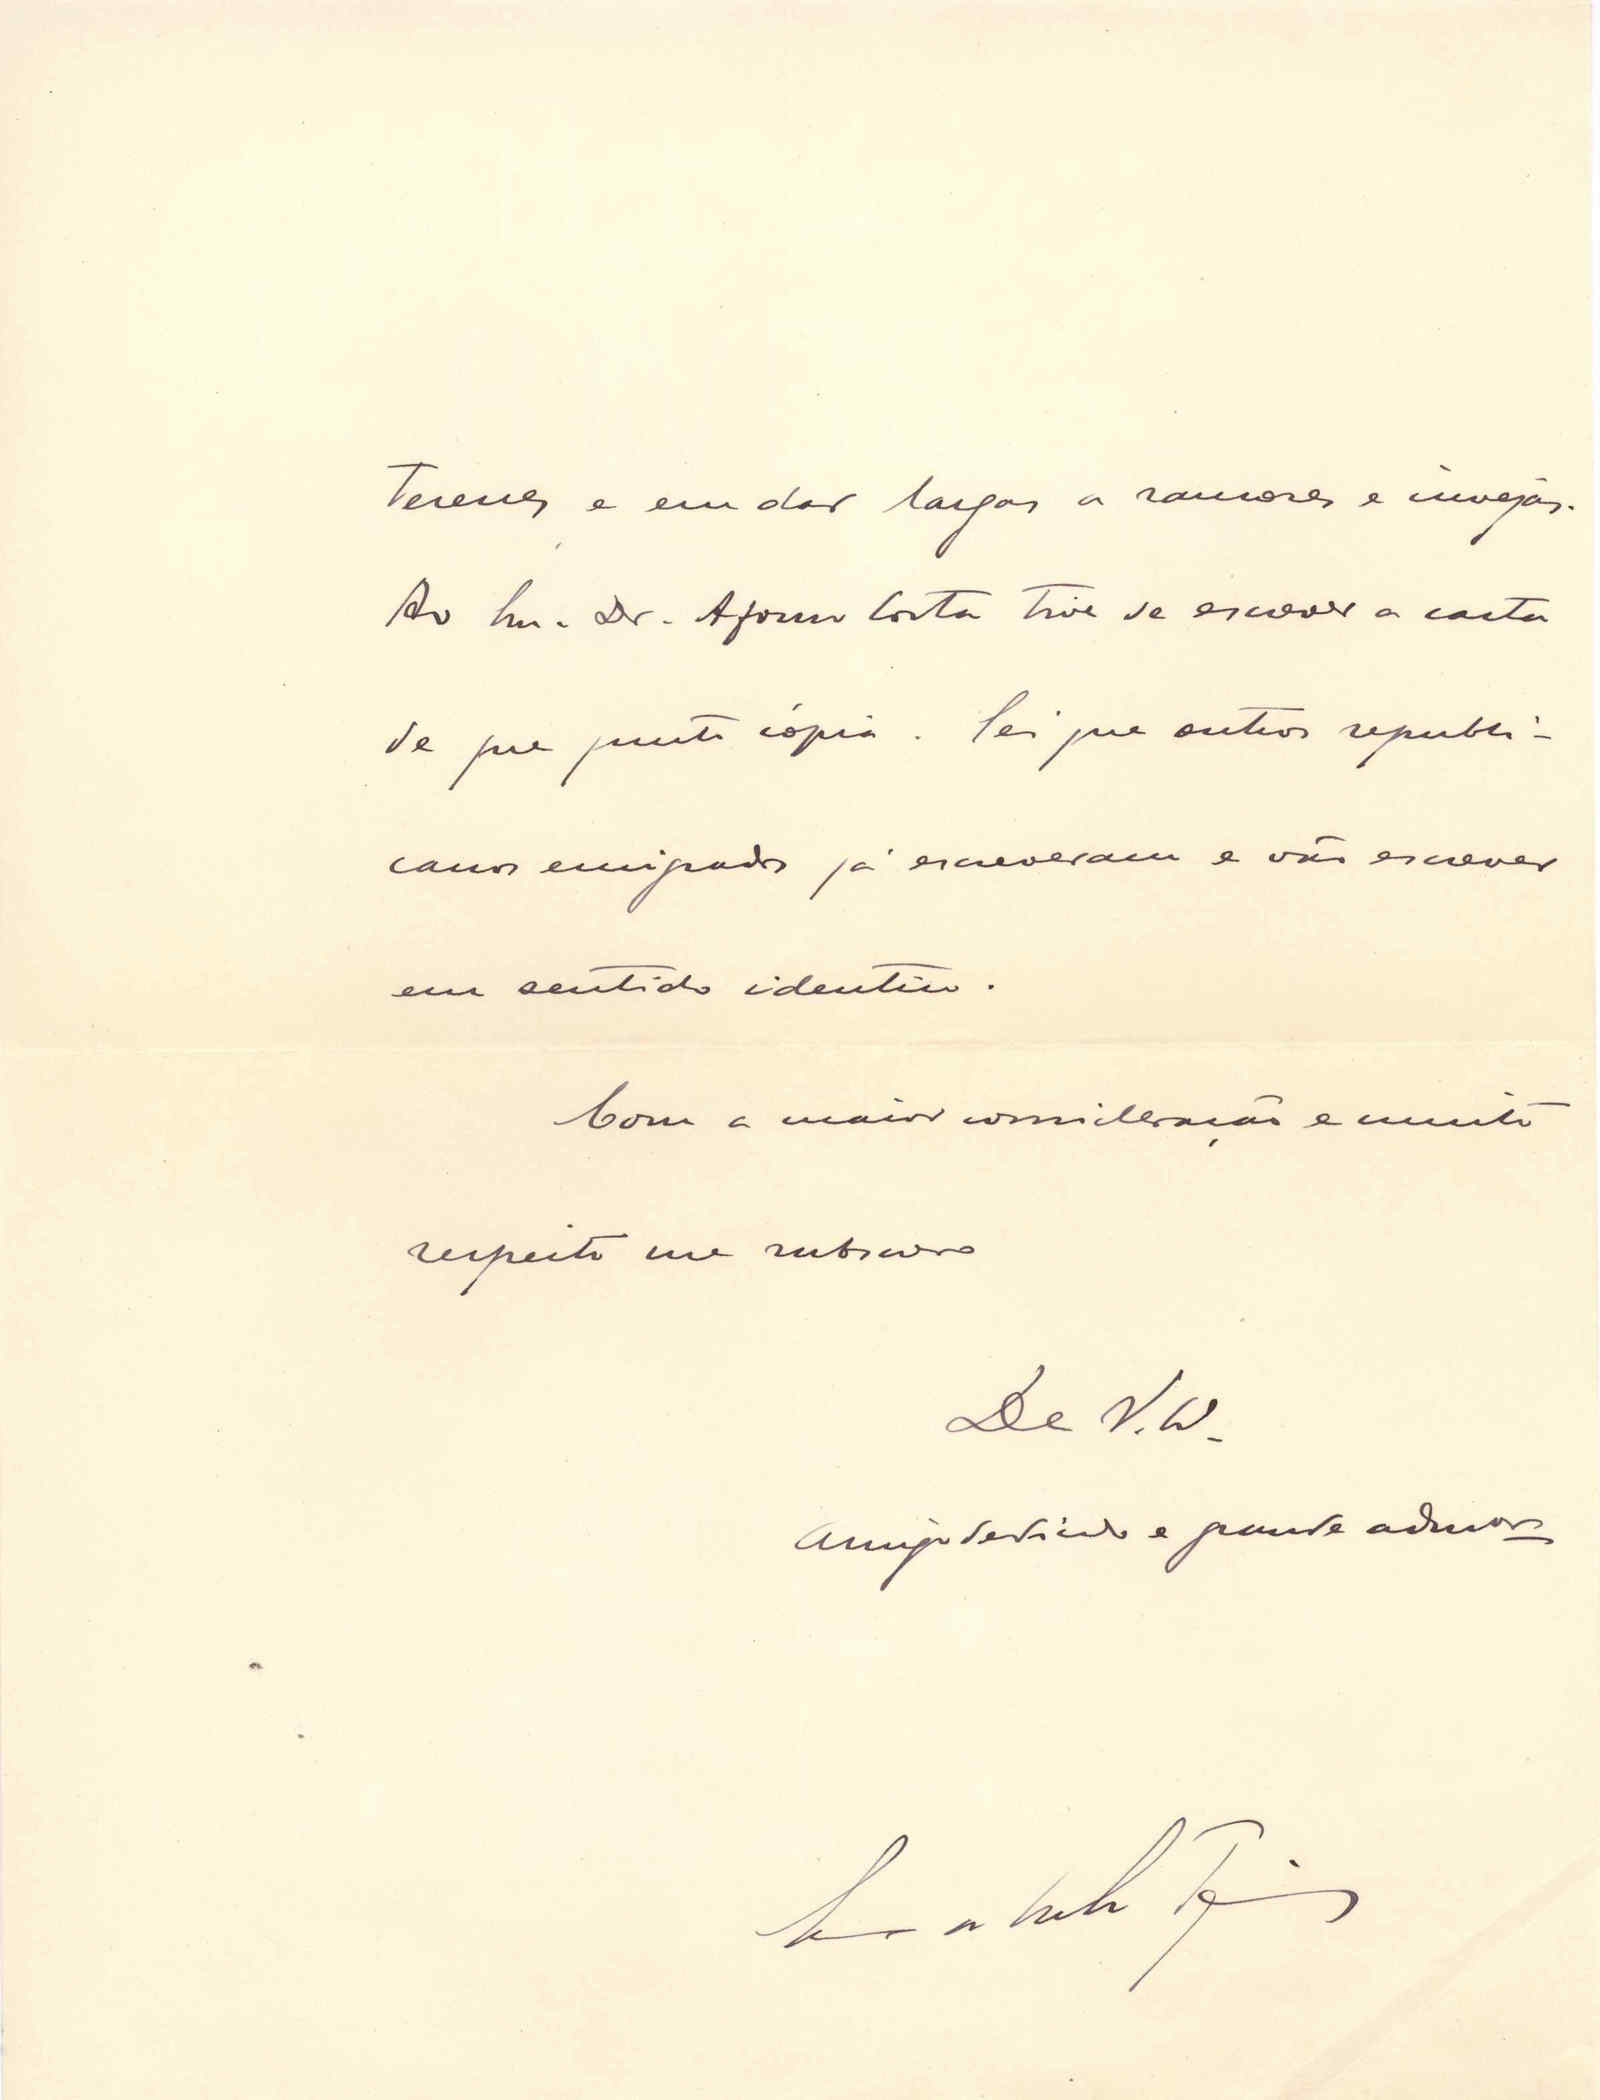 e em dar largas a rancores e invejas.
Ao Snr. Dr. Afonso Costa tive de escrever a carta
de que junto cópia. Sei que outros republi-
canos emigrados já escreveram e vão escrever
em sentido identico.
Com a maior consideração e muito
respeito me subscrevo
De V.
Amigo dedicado e grande admor